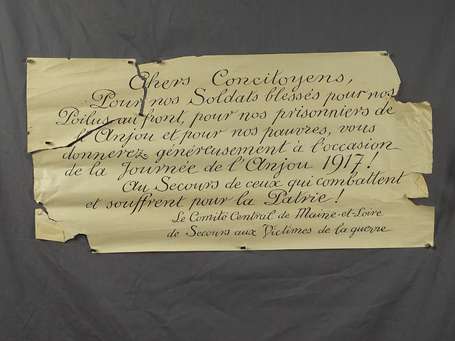 Chers Concitoyens,
Pour nos Soldats blessés pour nos
Poilus au front, pour nos prisonniers de
l'Anjou et pour nos pauvres, vous
donnerez généreusement à l'occasion
de la Journée de l'Anjou 1917!
Au Secours de ceux qui combattent
et souffrent pour la Patrie!
Le Comité Central de Maine-et-Loire
de Secours aux Victimes de la guerre